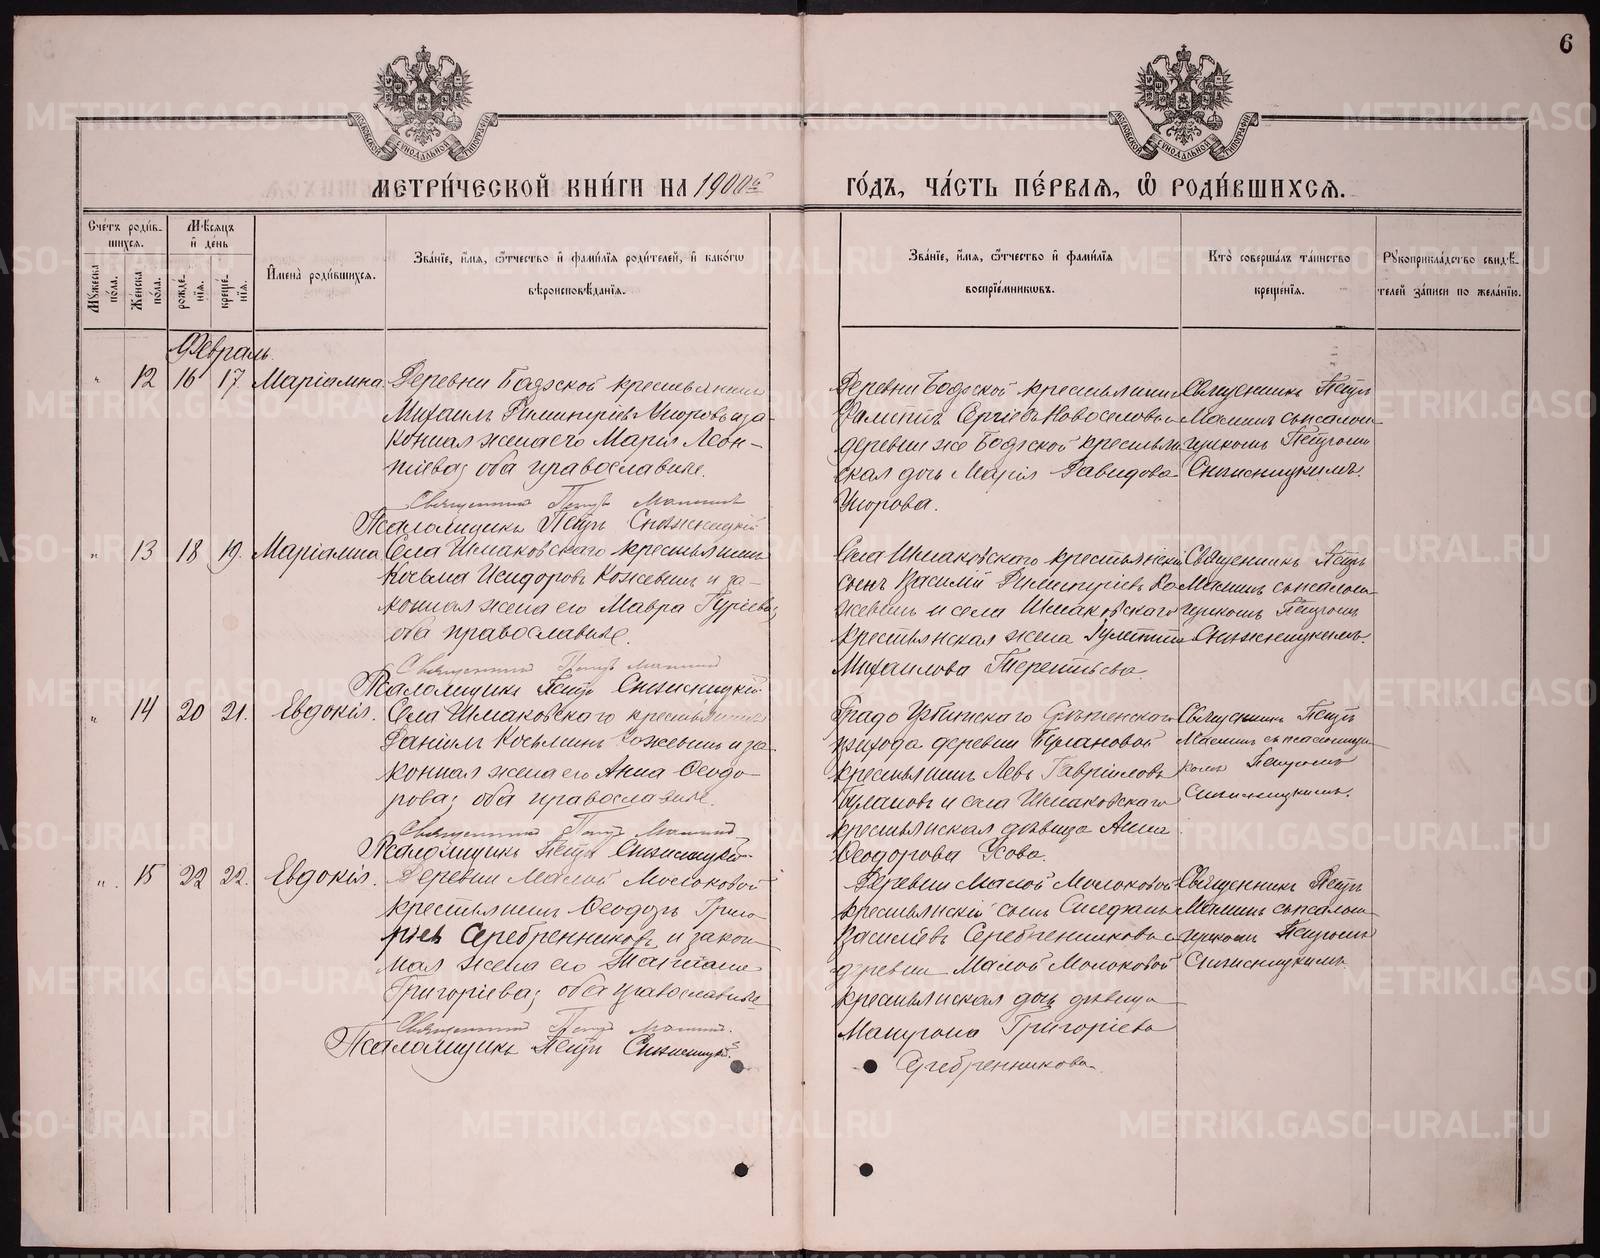 6
МЕТРИ́ЧЕСКОЙ КНИ́ГИ НА 1900й
ГО́ДЪ, ЧА́СТЬ ПЕ́РВАЯ, Ѿ РОДИ́ВШИХСЯ.
Сче́тъ роди́вшихся.
Мꙋжеска по́ла.
Женска по́ла.
Мѣсяцъ и де́нь
рожде́нїя.
креще́нїя.
Имена̀ роди́вшихся.
Зва́нїе, и́мя, ѻ́тчество и фами́лїя роди́телей, и како́гѡ
вѣроисповѣ́данїя.
Зва́нїе, и́мя, ѻ́тчество и фами́лїя
воспрїе́мникѡвъ.
Кто̀ соверша́лъ та́инство
креще́нїя.
Рꙋкоприкла́дство свидѣ́-
телей за́писи по жела́нїю.
Февраль.
" 12 16 17. Маріамна.
Деревни Бодэской крестьянинъ
Михаилъ Димитріевъ и за-
конная жена его Марія Леон-
тіева; оба православные.
Священникъ Петръ
Псаломщикъ Петръ
Деревни Бодэской крестьянинъ
Сергіевъ Новоселовъ и
деревни же Бодэской крестьян-
ская дочь Марія Давидова
Священникъ Петръ
съ псалом-
щикомъ Петромъ
" 13 18 19. Маріамна
Села Шмаковскаго крестьянинъ
Косьма Исидоровъ Кожевинъ и за-
конная жена его Мавра Гуріева;
оба православные.
Священникъ Петръ
Псаломщикъ Петръ
Села Шмаковскаго крестьянскій
сынъ Василій Димитріевъ Ко-
жевинъ и села Шмаковскаго
крестьянская жена
Михаилова Терентьева.
Священникъ Петръ
съ псалом-
щикомъ Петромъ
" 14 20 21. Евдокія.
Села Шмаковскаго крестьянинъ
Даніилъ Косьминъ Кожевинъ и за-
конная жена его Анна Ѳеодо-
рова; оба православные.
Священникъ Петръ
Псаломщикъ Петръ
Градо Ирбитскаго Срѣтенскаго
прихода деревни Булановой
крестьянинъ Левъ Гавріиловъ
Булановъ и села Шмаковскаго
крестьянская дѣвица Анна
Ѳеодорова Усова.
Священникъ Петръ
съ псаломщи-
комъ Петромъ
" 15 22 22. Евдокія.
Деревни Малой Молоковой
крестьянинъ Ѳеодоръ Григо-
ріевъ Серебренниковъ и закон-
ная жена его Татіана
Григоріева; оба православные
Священникъ Петръ
Псаломщикъ Петръ
Деревни Малой Молоковой
крестьянскій сынъ Стефанъ
Василіевъ Серебренниковъ и
деревни Малой Молоковой
крестьянская дочь дѣвица
Григоріева
Серебренникова
Священникъ Петръ
съ псалом-
щикомъ Петромъ